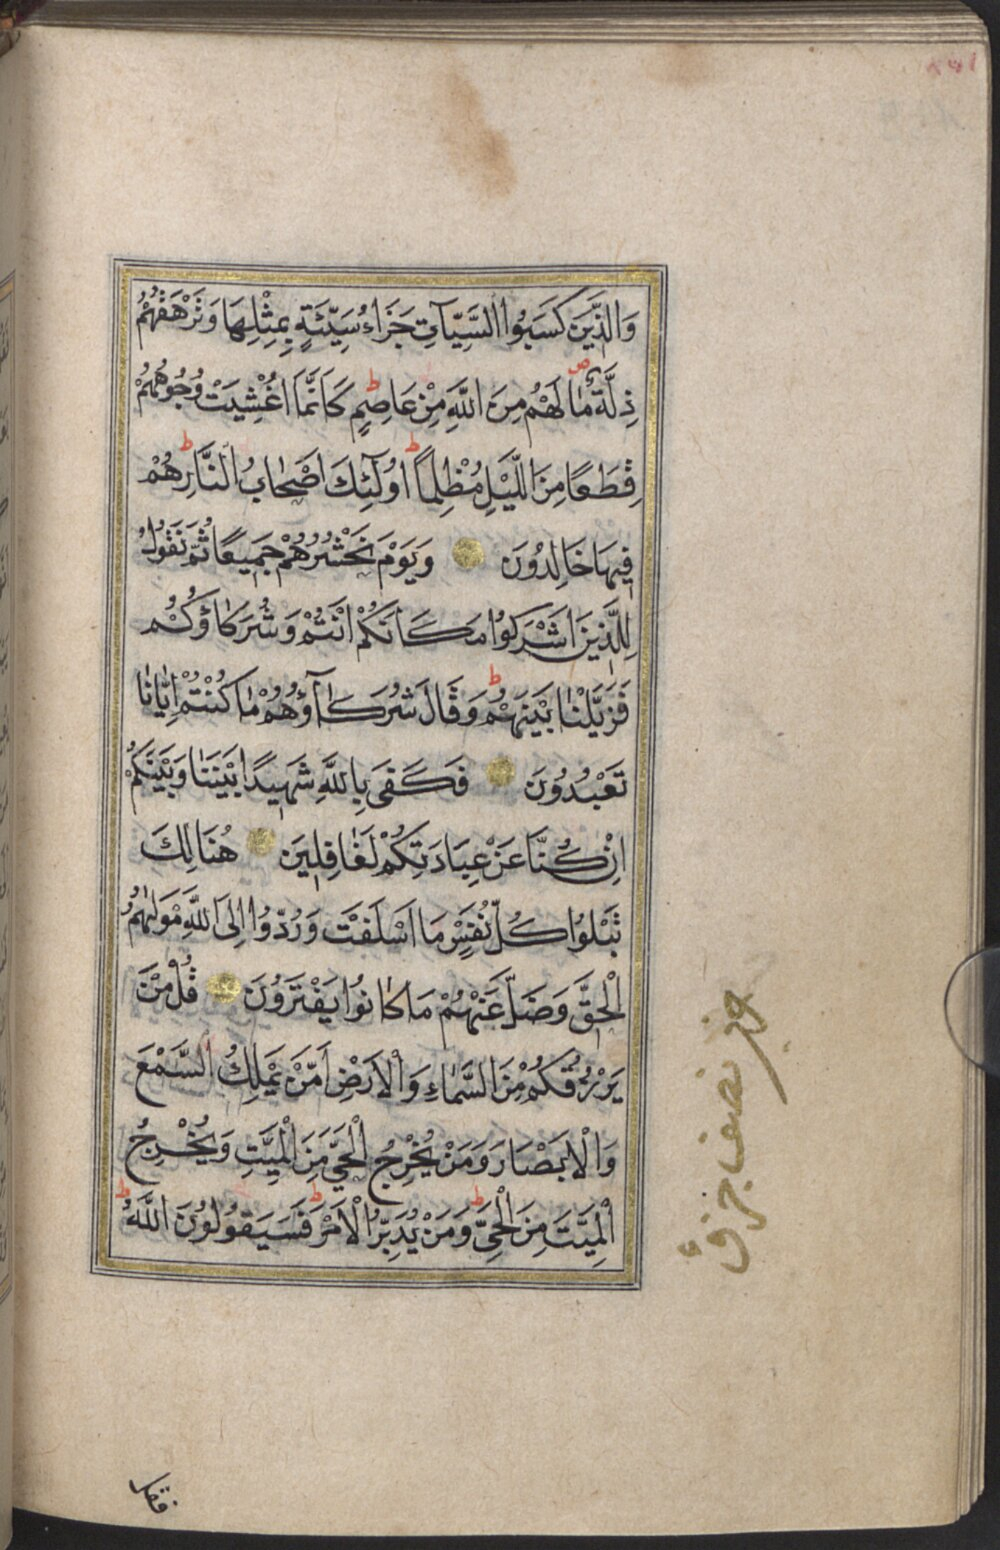 وَالَّذِينَ كَسَبُوا السَّيِّآتِ جَزَاءُ سَيِّئَةٍ بِمِثْلِهَا وَتَرْهَقُهُمْ
ذِلَّةٌ مَا لَهُمْ مِنَ اللَّهِ مِنْ عَاصِمٍ كَاَنَّمَا اُغْشِيَتْ وُجُوهُهُمْ
قِطَعًا مِنَ اللَّيْلِ مُظْلِمًا اُولَئِكَ اَصْحَابُ النَّارِ هُمْ
فِيهَا خَالِدُونَ وَيَوْمَ نَحْشُرُهُمْ جَمِيعًا ثُمَّ نَقُولُ
لِلَّذِينَ اَشْرَكُوا مَكَانَكُمْ اَنْتُمْ وَشُرَكَاؤُكُمْ
فَزَيَّلْنَا بَيْنَهُمْ وَقَالَ شُرَكَآؤُهُمْ مَا كُنْتُمْ اِيَّانَا
تَعْبُدُونَ فَكَفَى بِاللَّهِ شَهِيدًا بَيْنَنَا وَبَيْنَكُمْ
اِنْ كُنَّا عَنْ عِبَادَتِكُمْ لَغَافِلِينَ هُنَالِكَ
تَبْلُوا كُلُّ نَفْسٍ مَا اَسْلَفَتْ وَرُدُّوا اِلَى اللَّهِ مَوْلَيهُمُ
الْحَقِّ وَضَلَّ عَنْهُمْ مَا كَانُوا يَفْتَرُونَ قُلْ مَنْ
يَرْزُقُكُمْ مِنَ السَّمَاءِ وَالْاَرْضِ اَمَّنْ يَمْلِكُ السَّمْعَ
وَالْاَبْصَارَ وَمَنْ يُخْرِجُ الْحَيَّ مِنَ الْمَيِّتِ وَيُخْرِجُ
الْمَيِّتَ مِنَ الْحَيِّ وَمَنْ يُدَبِّرُ الْاَمْرَ فَسَيَقُولُونَ اللَّهُ
فقل
نصف